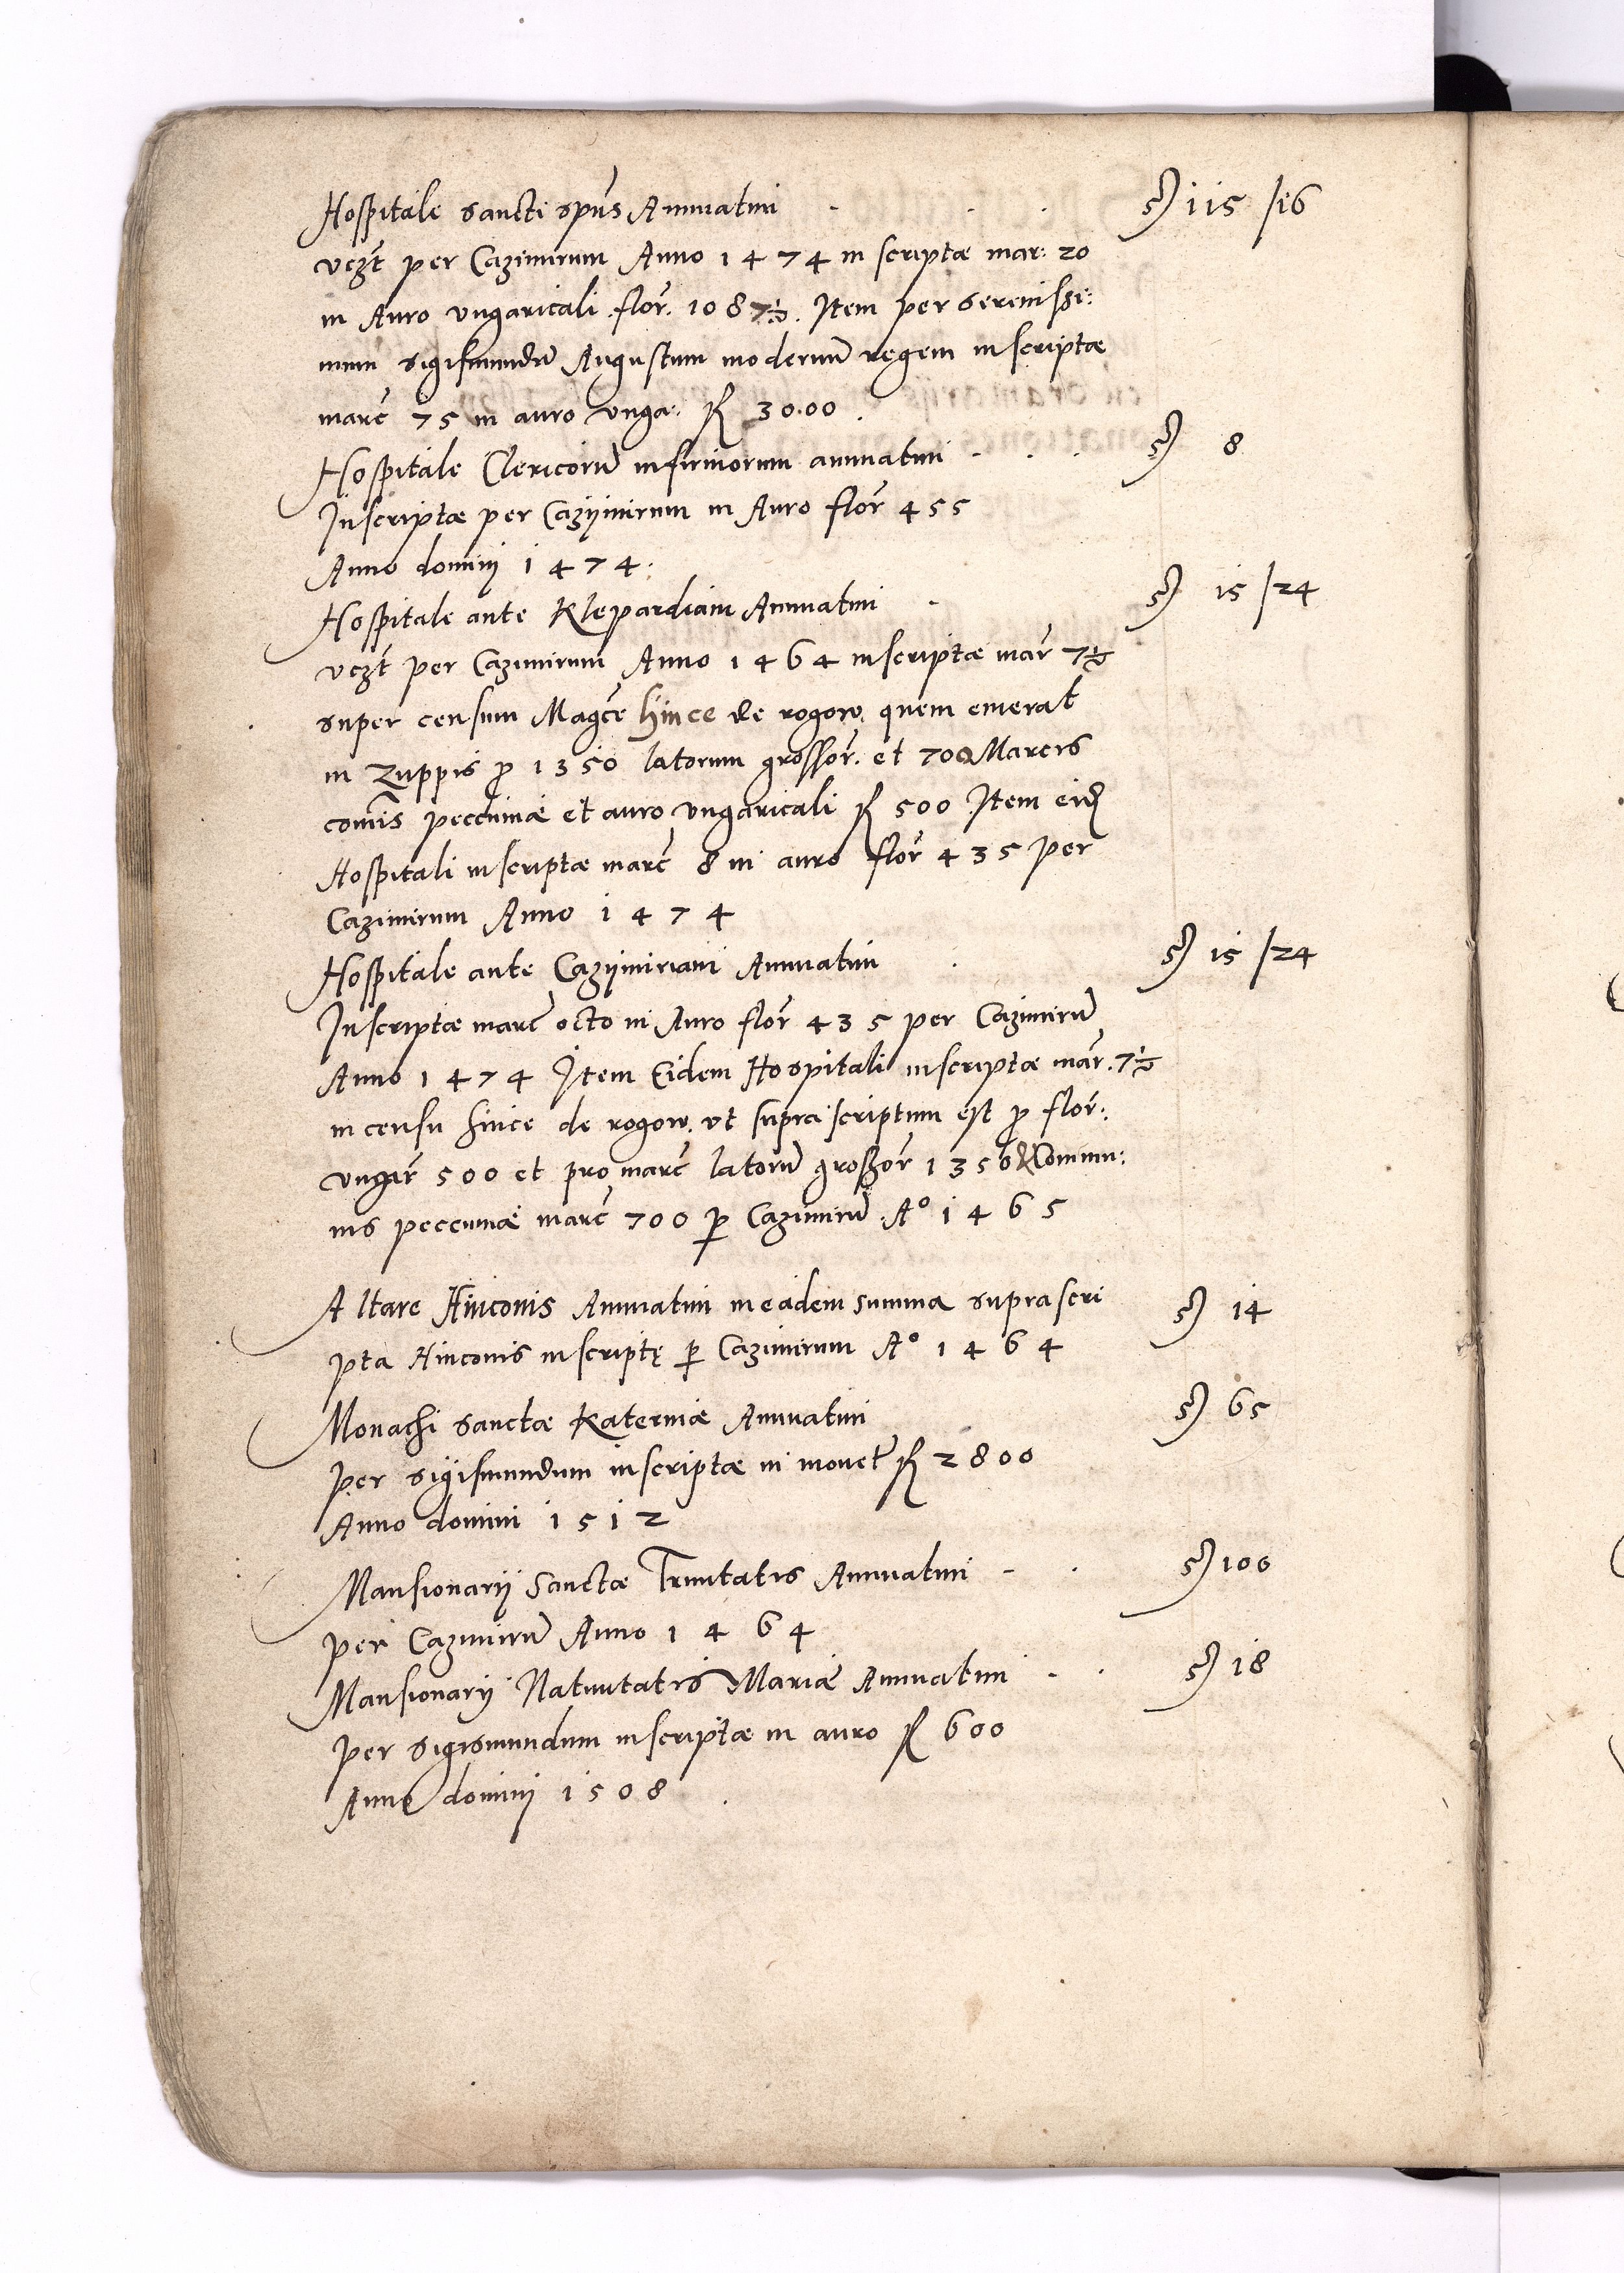 Hospitale sancti sp̃us Annuatim ß 115 /16
vczt per Cazimirum Anno 1474 in scriptæ mar: 20
in Auro ungaricali flor̃. 1087½. Item per serenissi:
mum sigismundũ Augustum modernũ regem inscriptæ
marc̃ 75 in auro unga: fl 3000.
Hospitale Clericorũ infirmorum annuatim ß 8
Inscriptæ per Cazijmirum in Auro flor̃ 455
Anno dominj 1474.
Hospitale ante Klepardiam Annuatim ß 15 /24
vczt per Cazimirum Anno 1464 inscriptæ mar̃ 7½
super censum Magc̃e hince de rogow. quem emerat
in Zuppis ꝓ 1350 latorum grossor̃. et 700 Marcis
com̃is peccuniæ et auro ungaricali fl 500 Item eid̃
Hospitali inscriptæ marc̃ 8 in auro flor̃ 435 per
Cazimirum Anno 1474
Hospitale ante Cazijmiriam Annuatim ß 15 /24
Inscriptæ marc̃ octo in Auro flor̃ 435 per Cazimirũ
Anno 1474 Item Eidem Hospitali inscriptæ mar̃. 7½
in censu hince de rogow. ut supra scriptum est ꝓ flor:.
ungar̃ 500 et pro marc̃ latorũ großor̃ 1350 & Commu:
nis peccuniæ marc̃ 700 ꝑ Cazimirũ A° 1465
Altare Hinconis Annuatim in eadem summa suprascri ß 14
pta Hinconis inscriptę ꝑ Cazimirum A° 1464
Monachi sanctæ Katerinæ Annuatim ß 65
per sigismundum inscriptæ in monet̃ fl 2800
Anno domini 1512
Mansionarij Sanctæ Trinitatis Annuatim ß 100
per Cazimirũ Anno 1464
Mansionarij Nativitatis Mariæ Annuatim ß 18
per sigismundum inscriptæ in auro fl 600
Anno dominj 1508